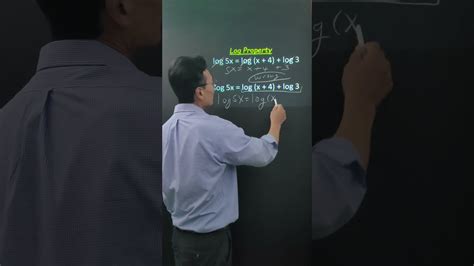 Log Property
log 5x = log (x + 4) + log 3
5x = x + 4 + 3
wrong
log 5x = log (x + 4) + log 3
log5x = log(x